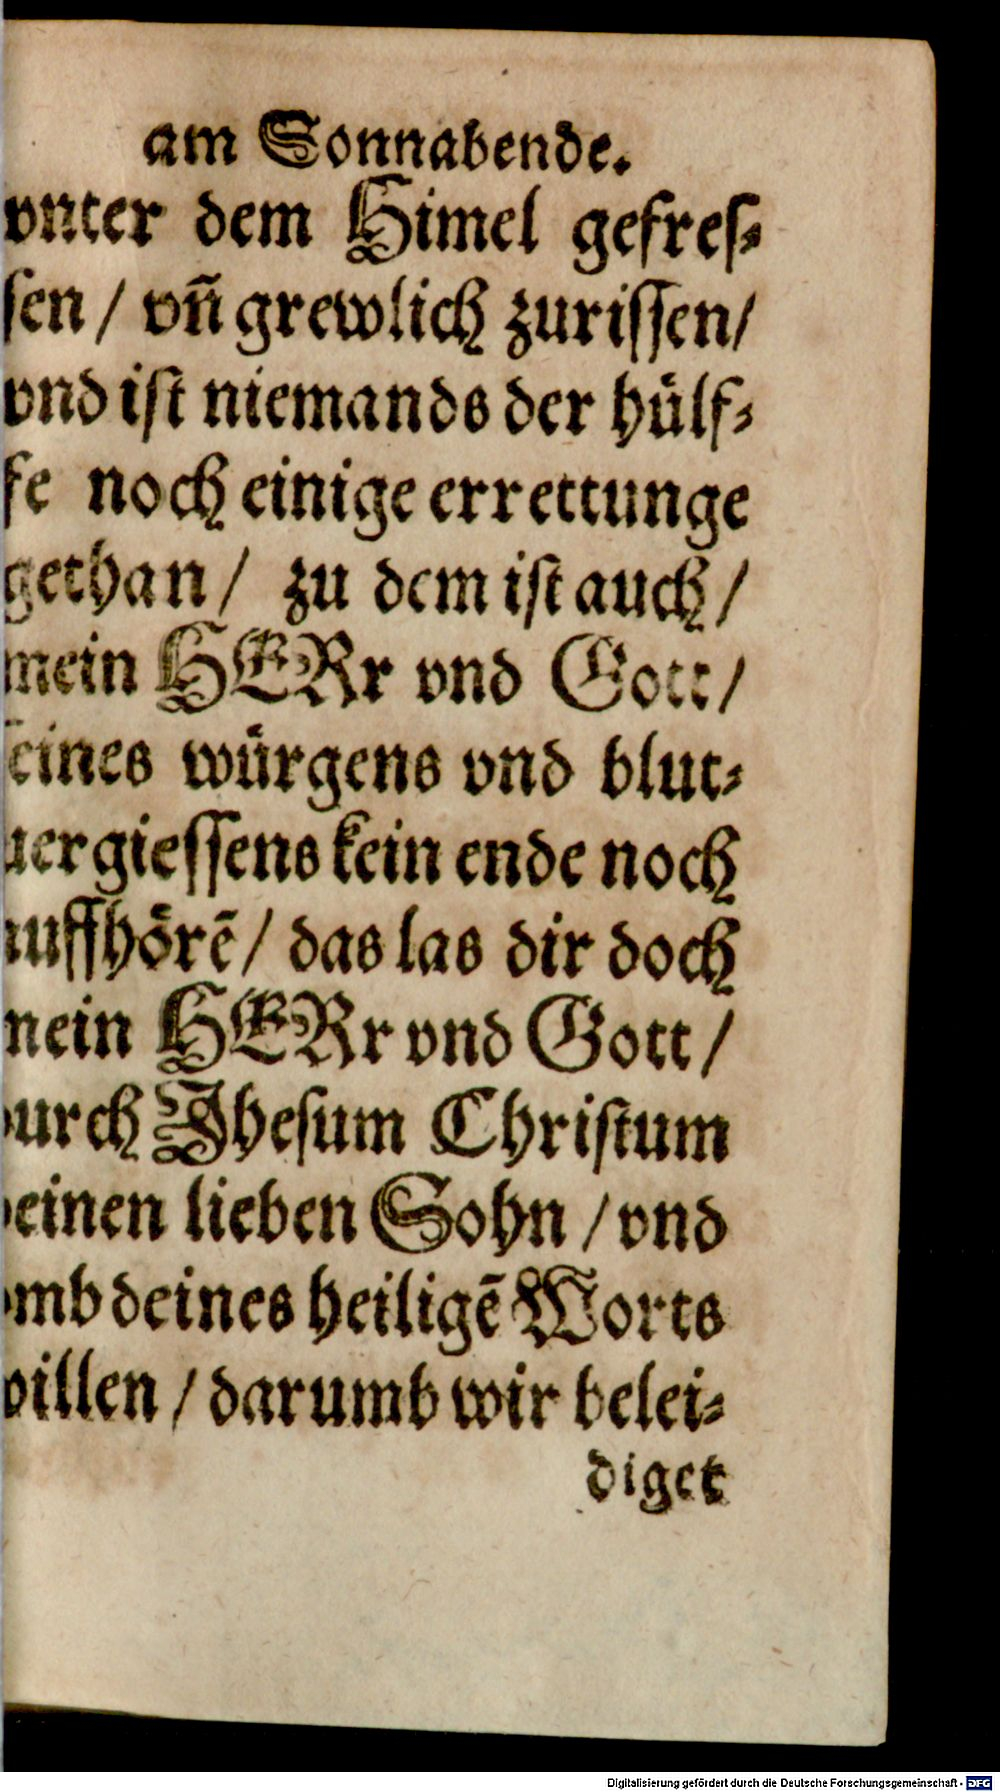 am Sonnabende.
vnter dem Himel gefres⸗
sen / vn̄ grewlich zurissen/
vnd ist niemands der hülf⸗
fe noch einige errettunge
gethan / zu dem ist auch /
mein HERr vnd Gott /
seines würgens vnd blut⸗
uergiessens kein ende noch
auffhörē / das las dir doch
mein HERr vnd Gott /
durch Jhesum Christum
deinen lieben Sohn / vnd
vmb deines heiligē Worts
willen / darumb wir belei⸗
diget
Digitalisierung gefördert durch die Deutsche Forschungsgemeinschaft - DFG